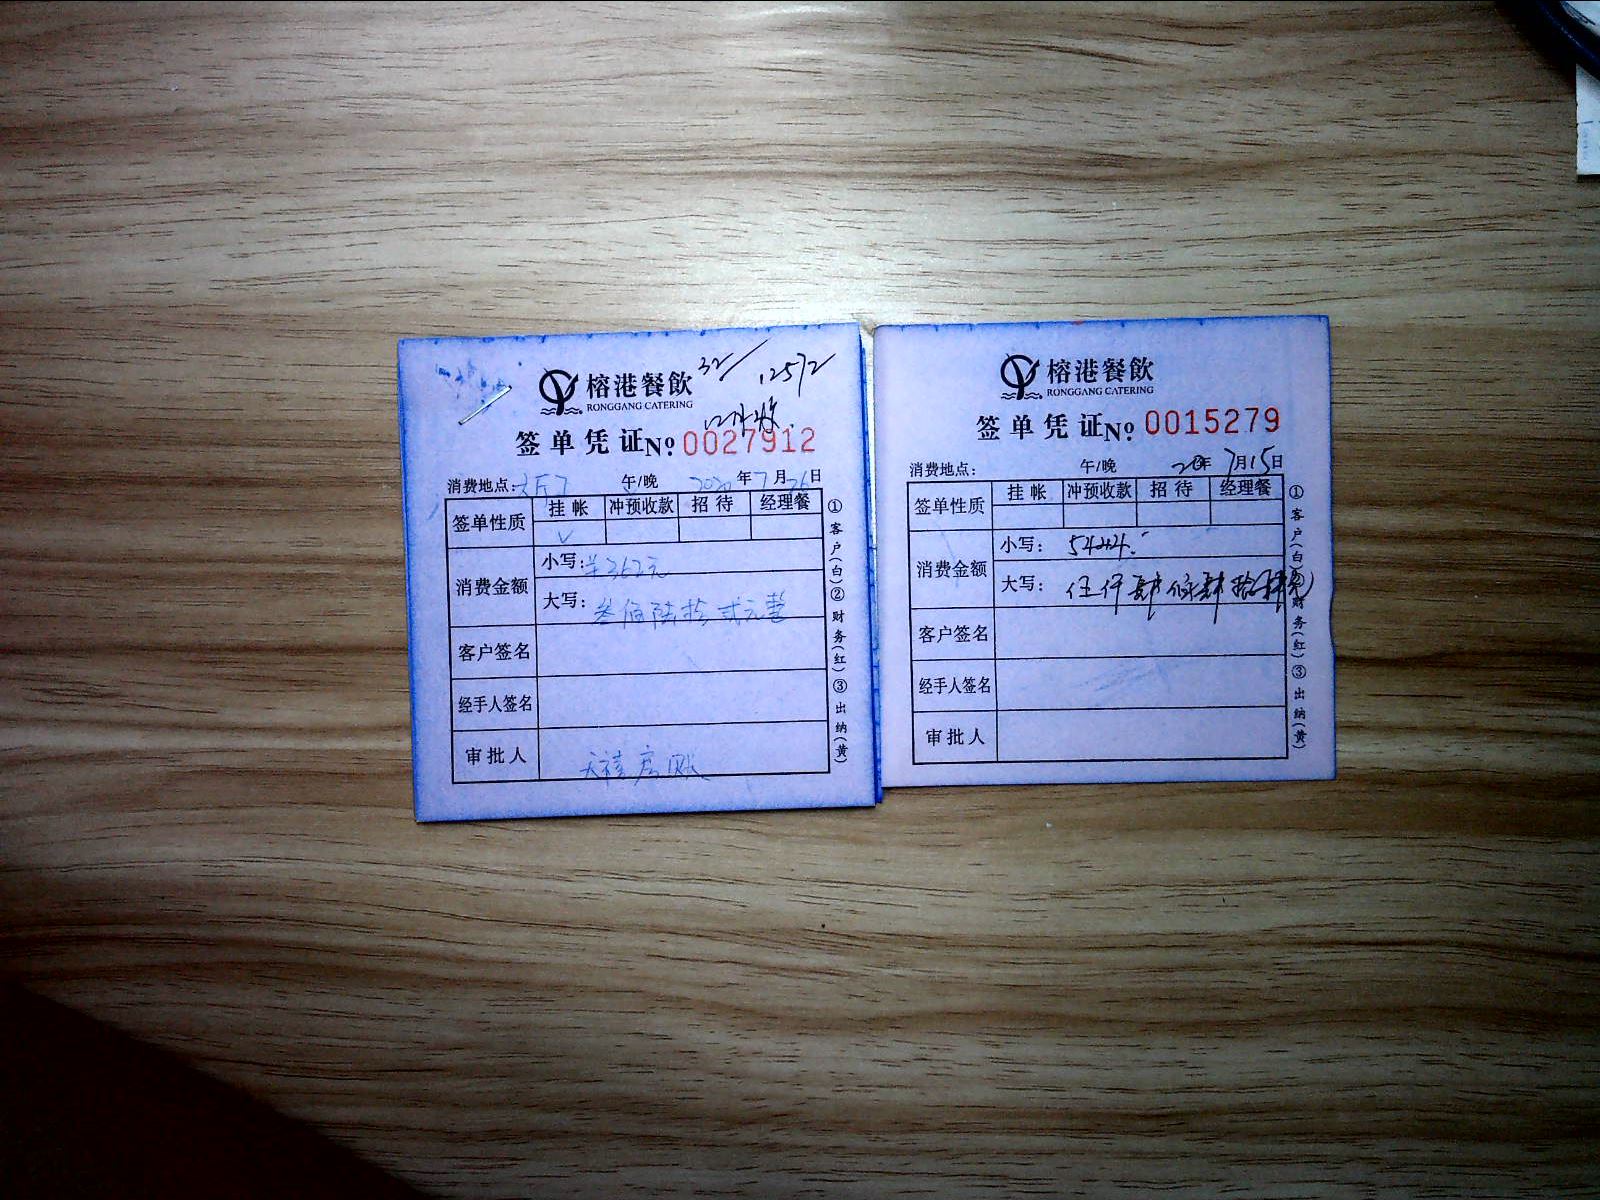 榕港餐飲 32
RONGGANG CATERING
签单凭证No. 0027912
消费地点: 午/晚 2020年7月26日
签单性质 挂帐 冲预收款 招待 经理餐
✓
消费金额 小写:¥362元
大写: 叁佰陆拾贰元整
客户签名
经手人签名
审批人
①客户(白)②财务(红)③出纳(黄)
榕港餐飲
RONGGANG CATERING
签单凭证No. 0015279
消费地点: 午/晚 20年7月15日
签单性质 挂帐 冲预收款 招待 经理餐
消费金额 小写: 5444.
大写: 伍仟肆佰肆拾肆元
客户签名
经手人签名
审批人
①客户(白)②财务(红)③出纳(黄)